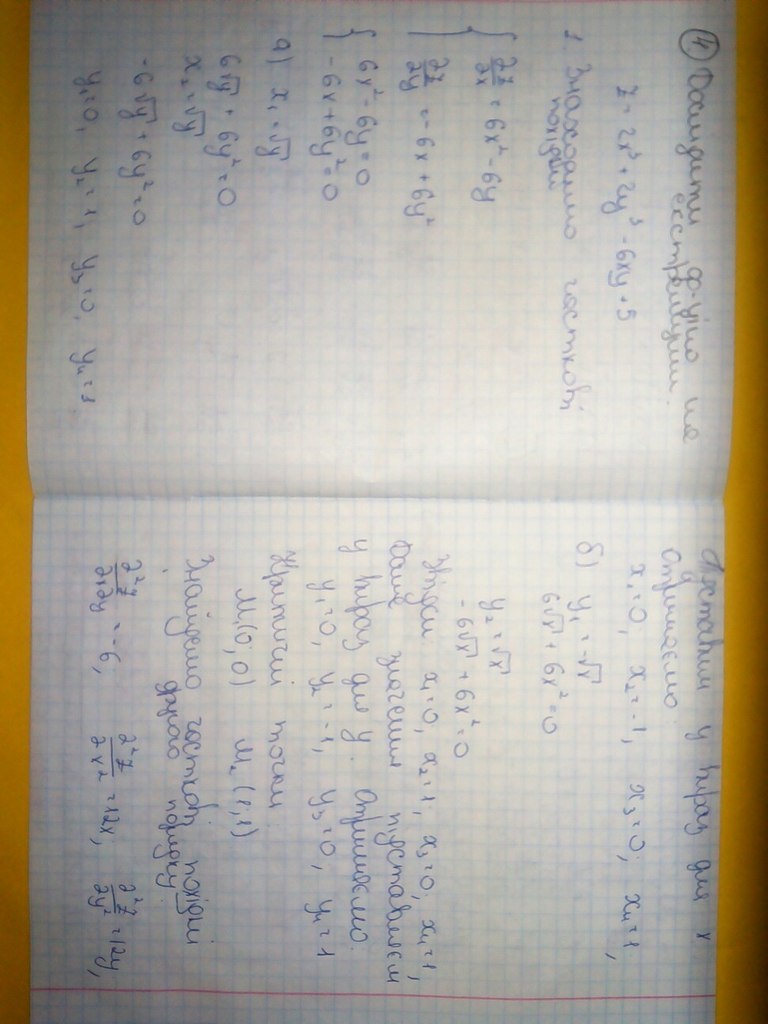 ④ Дослідити ф-цію на
екстремум.
z = 2x³ + 2y³ - 6xy + 5
1. Знаходимо часткові
похідні
{ ∂z/∂x = 6x² - 6y
∂z/∂y = -6x + 6y²
{ 6x² - 6y = 0
-6x + 6y² = 0
а) x₁ = √y
6√y + 6y² = 0
x₂ = √y
-6√y + 6y² = 0
y₁ = 0, y₂ = 1, y₃ = 0, y₄ = 1
у вираз для x
отримаємо
x₁ = 0; x₂ = -1, x₃ = 0; x₄ = 1,
б) y₁ = -√x
6√x + 6x² = 0
y₂ = √x
-6√x + 6x² = 0
Звідси: x₁ = 0, x₂ = 1, x₃ = 0; x₄ = 1,
Дані значення підставляєм
у вираз для y. Отримаємо:
y₁ = 0, y₂ = -1, y₃ = 0, y₄ = 1
Критичні точки
M₁(0, 0) M₂(1, 1)
Знайдемо часткові похідні
другого порядку
∂²z/∂x∂y = -6, ∂²z/∂x² = 12x, ∂²z/∂y² = 12y,